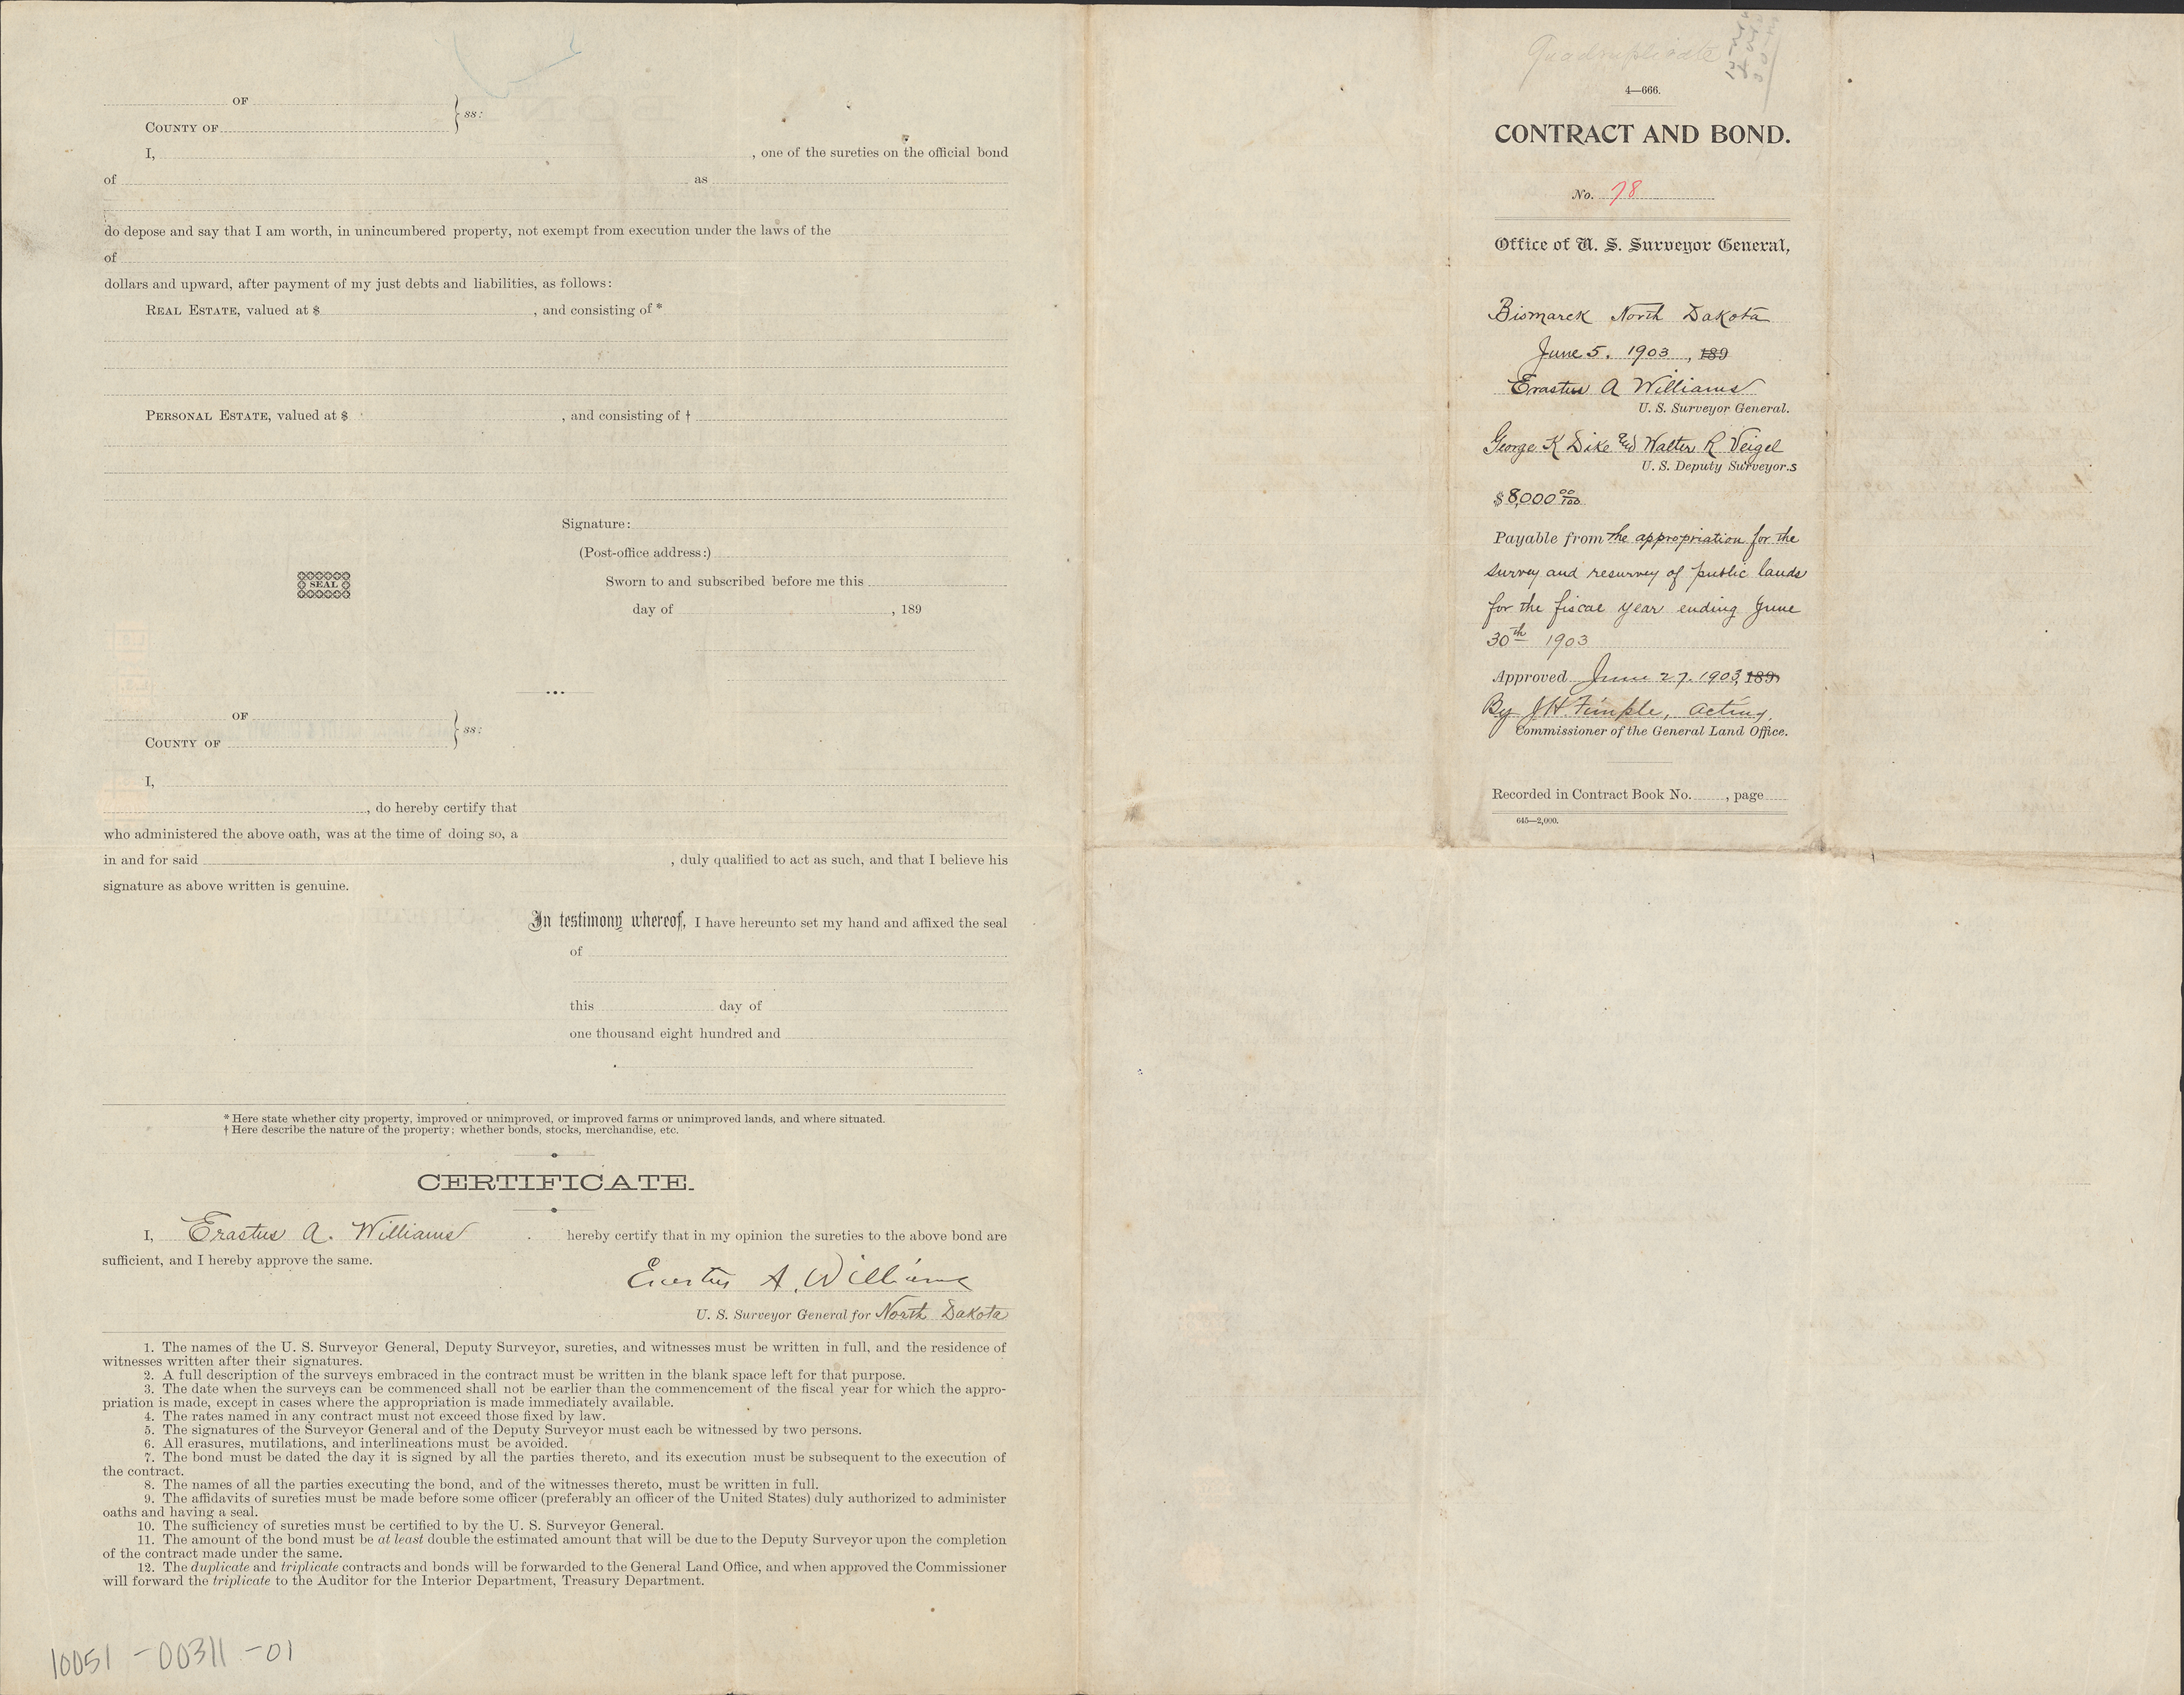 OF
COUNTY OF } ss:
I, , one of the sureties on the official bond
of as
do depose and say that I am worth, in unincumbered property, not exempt from execution under the laws of the
of
dollars and upward, after payment of my just debts and liabilities, as follows:
REAL ESTATE, valued at $ , and consisting of *
PERSONAL ESTATE, valued at $ , and consisting of †
Signature:
(Post-office address:)
SEAL
Sworn to and subscribed before me this
day of , 189
OF
COUNTY OF } ss:
I,
, do hereby certify that
who administered the above oath, was at the time of doing so, a
in and for said , duly qualified to act as such, and that I believe his
signature as above written is genuine.
In testimony whereof, I have hereunto set my hand and affixed the seal
of
this day of
one thousand eight hundred and
* Here state whether city property, improved or unimproved, or improved farms or unimproved lands, and where situated.
† Here describe the nature of the property; whether bonds, stocks, merchandise, etc.
CERTIFICATE.
I, Erastus A. Williams hereby certify that in my opinion the sureties to the above bond are
sufficient, and I hereby approve the same.
Erastus A. Williams
U. S. Surveyor General for North Dakota
1. The names of the U. S. Surveyor General, Deputy Surveyor, sureties, and witnesses must be written in full, and the residence of
witnesses written after their signatures.
2. A full description of the surveys embraced in the contract must be written in the blank space left for that purpose.
3. The date when the surveys can be commenced shall not be earlier than the commencement of the fiscal year for which the appro-
priation is made, except in cases where the appropriation is made immediately available.
4. The rates named in any contract must not exceed those fixed by law.
5. The signatures of the Surveyor General and of the Deputy Surveyor must each be witnessed by two persons.
6. All erasures, mutilations, and interlineations must be avoided.
7. The bond must be dated the day it is signed by all the parties thereto, and its execution must be subsequent to the execution of
the contract.
8. The names of all the parties executing the bond, and of the witnesses thereto, must be written in full.
9. The affidavits of sureties must be made before some officer (preferably an officer of the United States) duly authorized to administer
oaths and having a seal.
10. The sufficiency of sureties must be certified to by the U. S. Surveyor General.
11. The amount of the bond must be at least double the estimated amount that will be due to the Deputy Surveyor upon the completion
of the contract made under the same.
12. The duplicate and triplicate contracts and bonds will be forwarded to the General Land Office, and when approved the Commissioner
will forward the triplicate to the Auditor for the Interior Department, Treasury Department.
10051-00311-01
Quadruplicate
4—666.
CONTRACT AND BOND.
No. 78
Office of U. S. Surveyor General,
Bismarck North Dakota
June 5. 1903, 189
Erastus A Williams
U. S. Surveyor General.
George K Dike and Walter R Veigel
U. S. Deputy Surveyor.s
$8,000 00/100
Payable from the appropriation for the
survey and resurvey of public lands
for the fiscal year ending June
30th 1903
Approved June 27. 1903, 189
By J H Fimple, Acting,
Commissioner of the General Land Office.
Recorded in Contract Book No. , page
645—2,000.